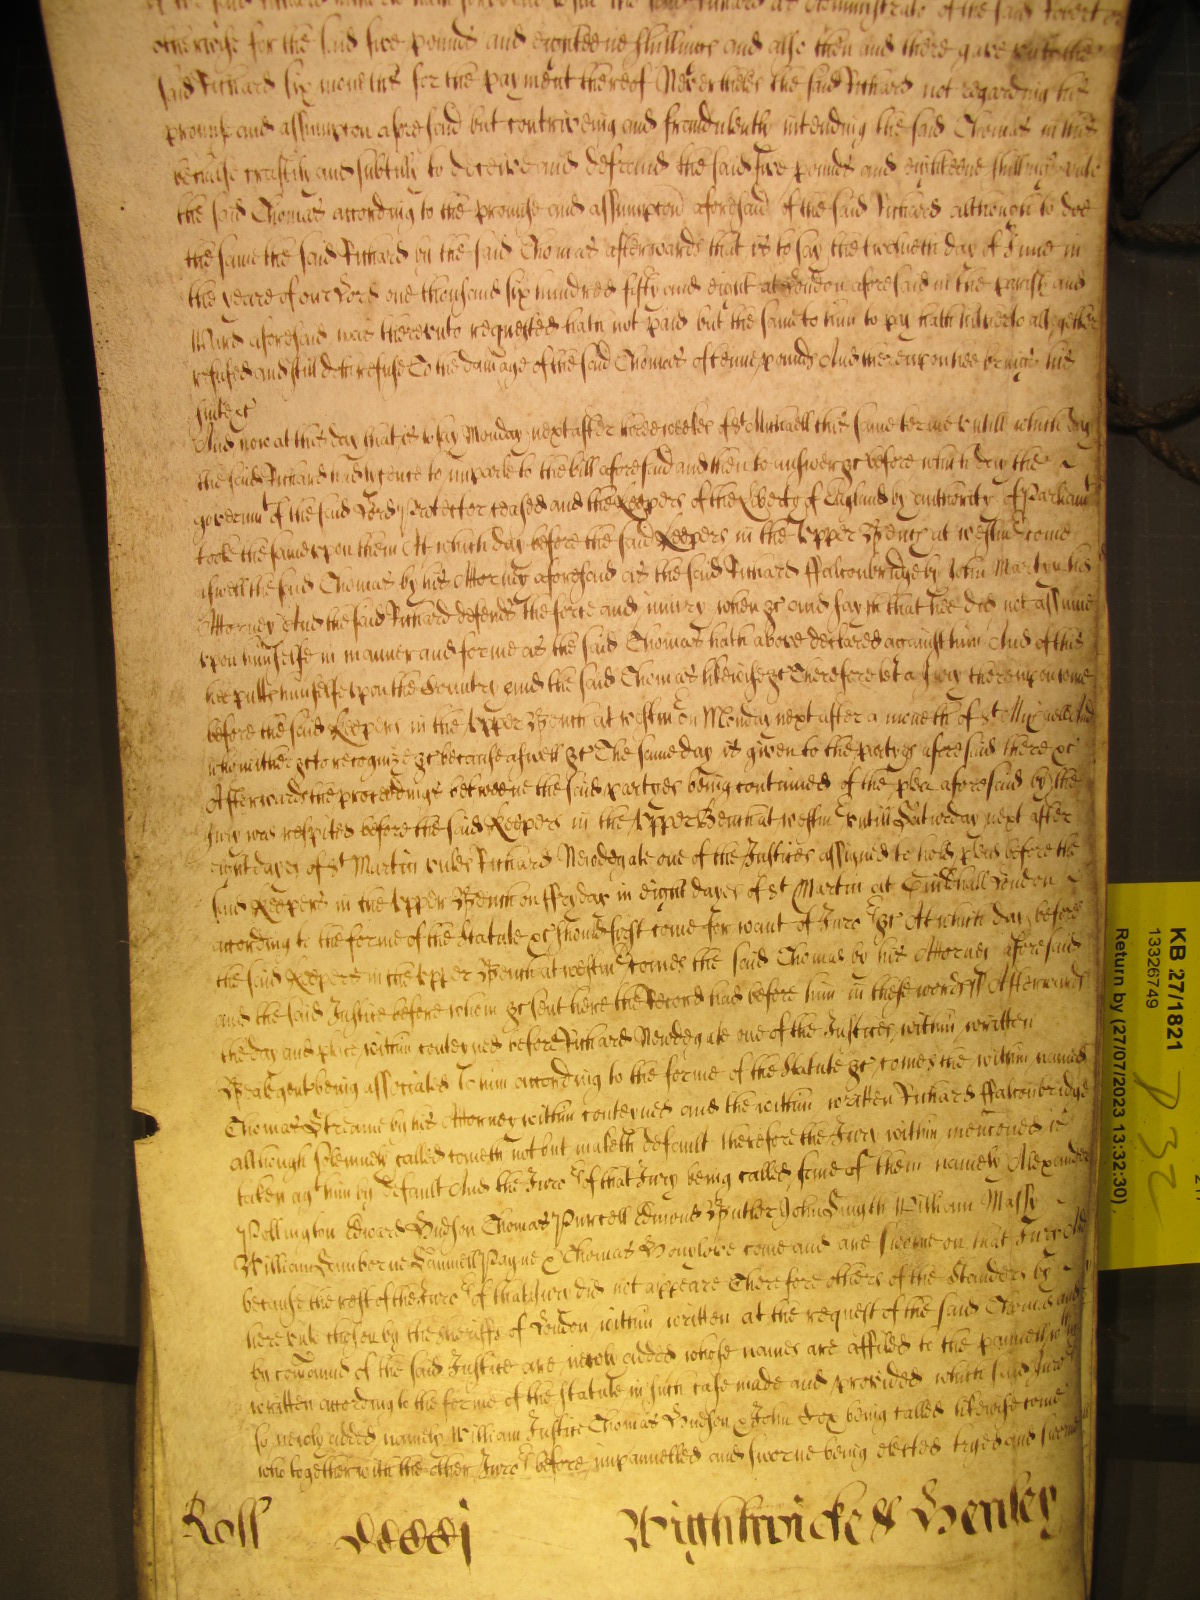 otherwise for the said five pounds and eighteene shillings and also then and there gave unto the
said Richard six moneths for the payment thereof Neverthelesse the said Richard not regarding his
promise and assumpcon aforesaid but contriveing and fraudulently intending the said Thomas in this
behalfe craftily and subtilly to deceive and defraud the said five pounds and eighteene shillings
the said Thomas according to the promise and assumpcon aforesaid of the said Richard although to doe
the same the said Richard by the said Thomas afterwards that is to say the twelveth day of June in
the yeare of our Lord one thousand six hundred fifty and eight at London aforesaid in the parish and
Ward aforesaid was thereunto requested hath not paid but the same to him to pay hath hitherto altogether
refused and still doth refuse To the damage of the said Thomas of tenne pounds And thereupon hee brings his
suite &c
And now at this day that is to say Monday next after three weekes of St Michaell this same terme untill which day
the said Richard had licence to imparle to the bill aforesaid and then to answer &c before which day the
governmt of the said Lord Protector ceased and the Keepers of the liberty of England by authority of Parliamt
tooke the same upon them At which day before the said Keepers in the Upper Bench at Westmr come
aswell the said Thomas by his Attorney aforesaid as the said Richard Ffalconbridge by John Martyn his
Attorney And the said Richard defends the force and iniury when &c and saith that hee did not assume
upon himselfe in manner and forme as the said Thomas hath above declared against him And of this
hee putts himselfe upon the Country And the said Thomas likewise &c Therefore let a Jury thereupon come
before the said Keepers in the Upper Bench at Westmr on Monday next after a moneth of St Michaell And
who neither &c to recognize &c because aswell &c The same day is given to the partyes aforesaid there &c
Afterwards the proceedings betweene the said partyes being continued of the plea aforesaid by the
Jury was respited before the said Keepers in the Upper Bench at Westmr untill Saturday next after
eight dayes of St Martin unles Richard Newdegate one of the Justices assigned to hold pleas before the
said Keepers in the Upper Bench on Ffryday in eight dayes of St Martin at Guildhall London
according to the forme of the Statute &c should first come for want of Juros &c At which day before
the said Keepers in the Upper Bench at Westmr comes the said Thomas by his Attorney aforesaid
and the said Justice before whom &c sent here the Record had before him in these words Afterwards
the day and place within conteyned before Richard Newdegate one of the Justices within written
being associated to him according to the forme of the Statute &c comes the within named
Thomas Streame by his Attorney within conteyned and the within written Richard Ffalconbridge
although solemnly called cometh not but maketh default Therefore the Jury within mencioned is
taken agt him by default And the Juros of that Jury being called some of them namely Alexander
Pollington Edward Hudson Thomas Purcell Edmond Butler John William Massy
William Lamborne Samuell Payne & Thomas Honylove come and are sworne on that Jury And
because the rest of the Juros of that Jury did not appeare Therefore others of the Standers by
here chosen by the Sheriffs of London within written at the request of the said Thomas and
by command of the said Justice are newly added whose names are affiled to the pannell within
written according to the forme of the Statute in such case made and provided which said Juros
so newly added namely William Justice Thomas Hudson & John Fox being called likewise come
who together with the other Juros before impannelled and sworne being elected tryed and sworne
Roll
Wightwicke & Henley
KB 27/1821
13326749
Return by (27/07/2023 13:32:30)